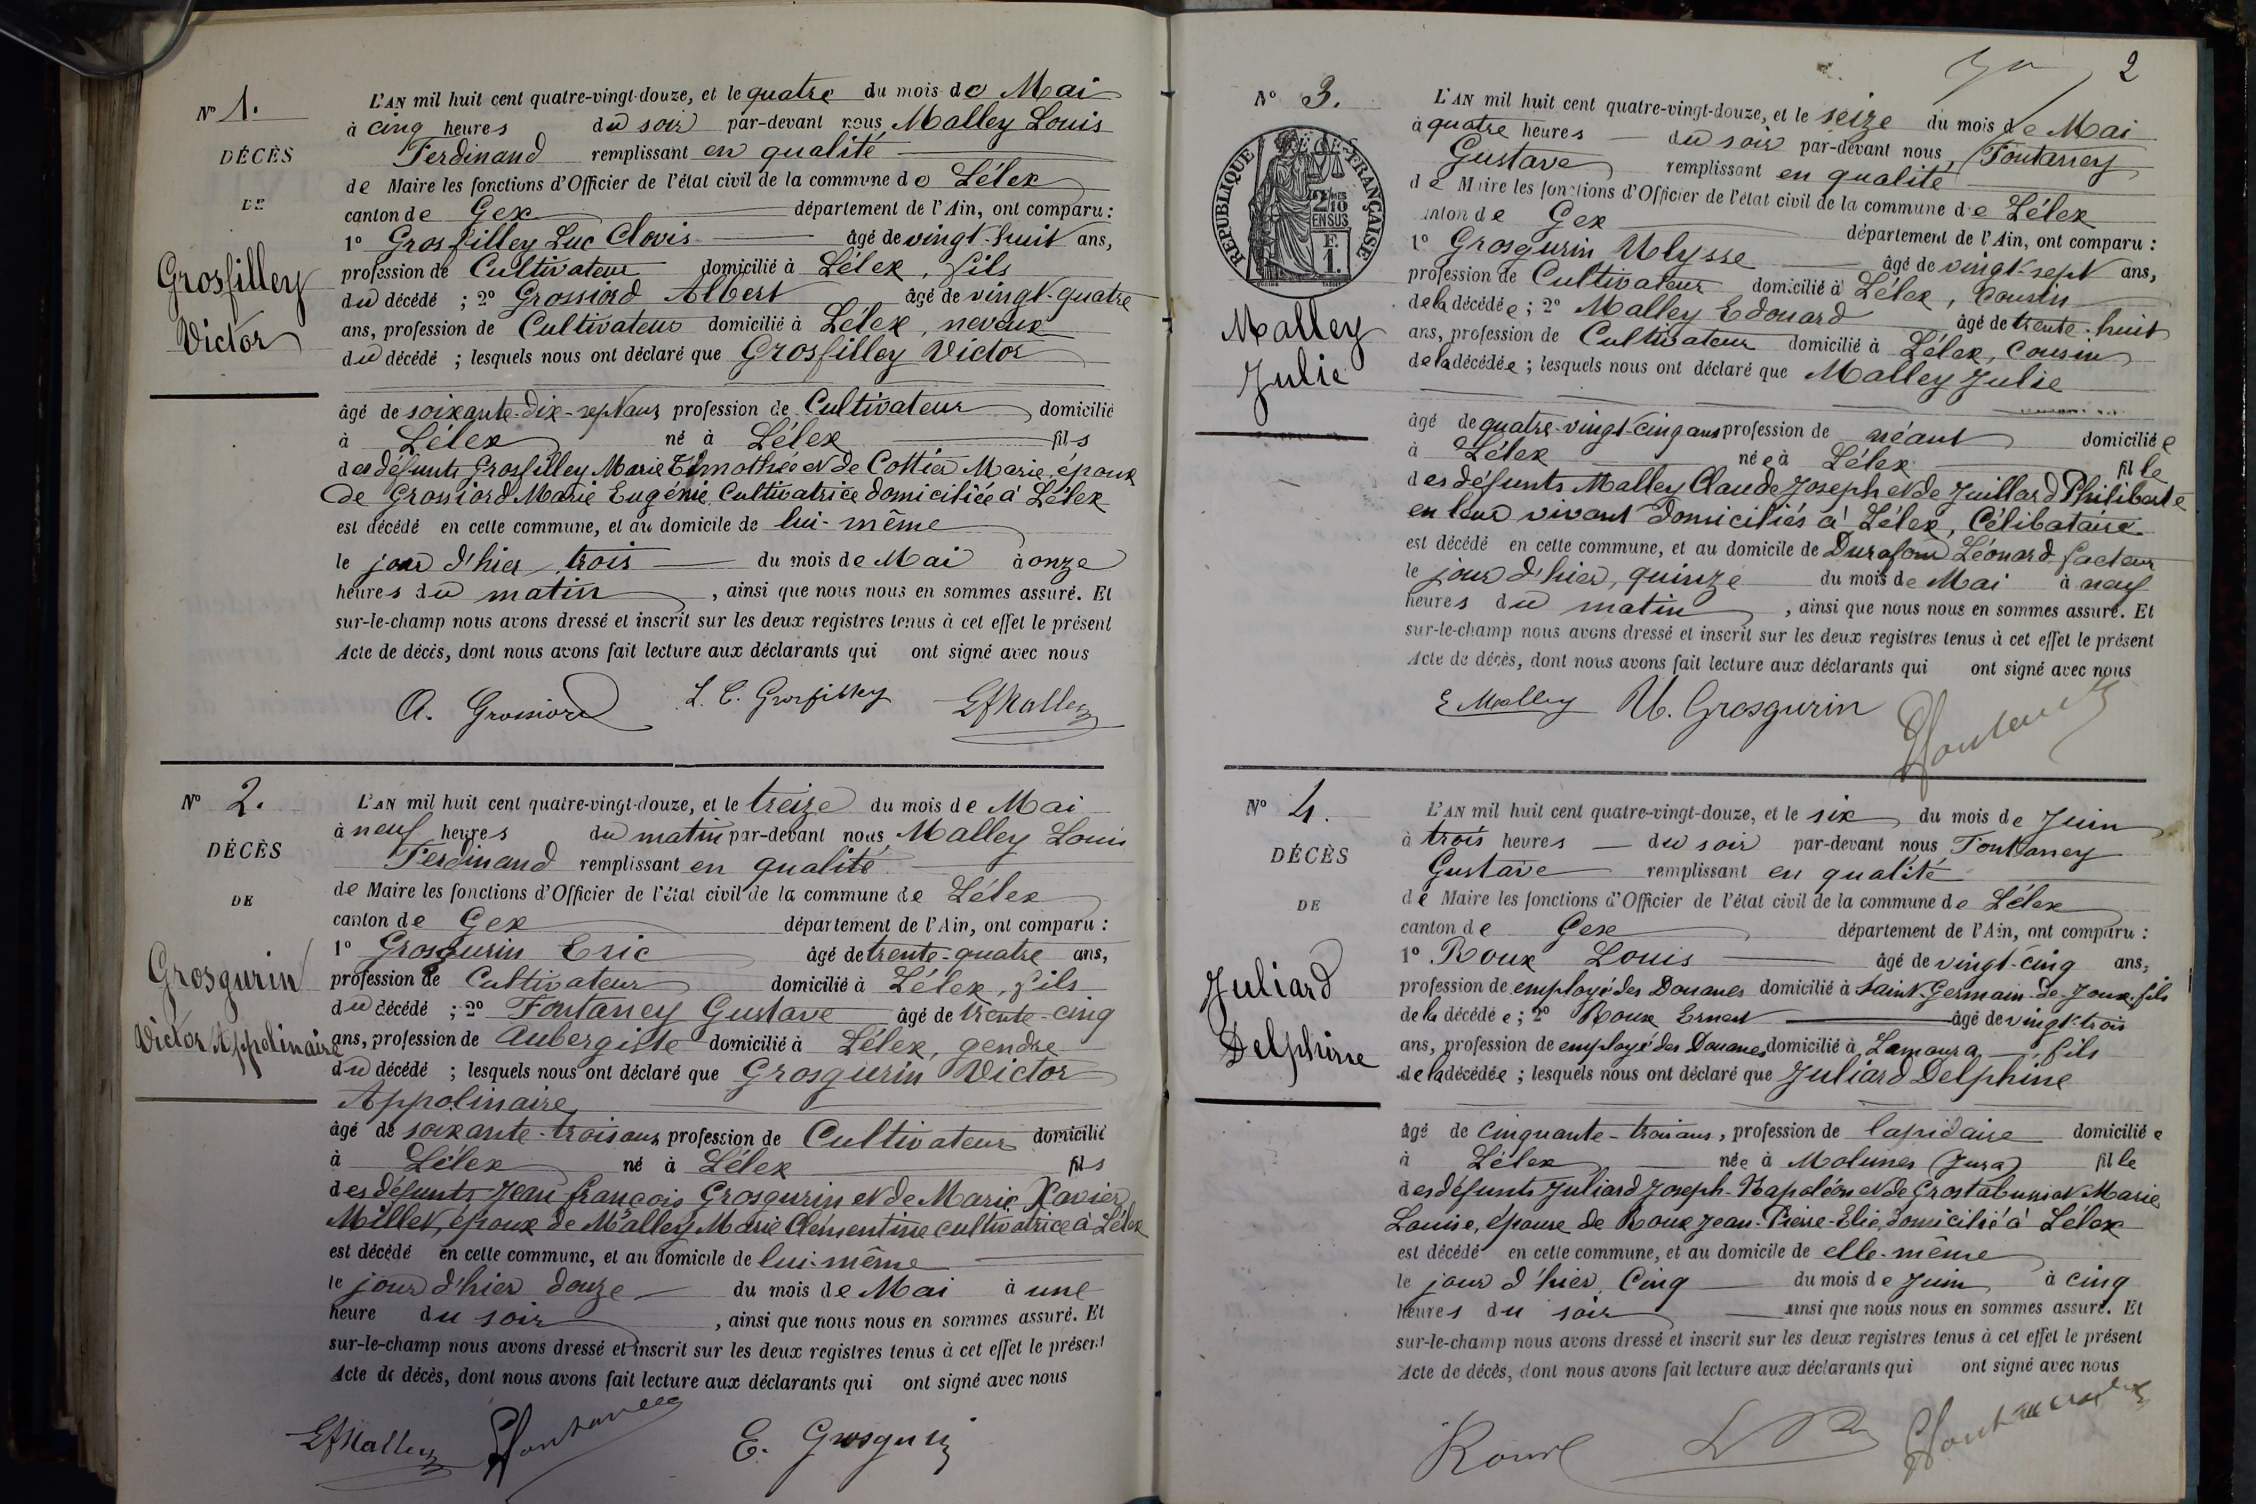 Nº 1.
DÉCÈS
DE
Grosfilley
Victor
L'AN mil huit cent quatre-vingt-douze, et le quatre du mois de Mai
à cinq heures du soir par-devant nous Malley Louis
Ferdinand remplissant en qualité
de Maire les fonctions d'Officier de l'état civil de la commune de Lélex
canton de Gex département de l'Ain, ont comparu :
1º Grosfilley Luc Clovis âgé de vingt-huit ans,
profession de Cultivateur domicilié à Lélex, fils
du décédé ; 2º Grossiord Albert âgé de vingt-quatre
ans, profession de Cultivateur domicilié à Lélex, neveux
du décédé ; lesquels nous ont déclaré que Grosfilley Victor
âgé de soixante-dix-sept ans profession de Cultivateur domicilié
à Lélex né à Lélex fils
des défunts Grosfilley Marie Timothée et de Cottier Marie, époux
de Grossiord Marie Eugénie Cultivatrice domiciliée à Lélex
est décédé en cette commune, et au domicile de lui-même
le jour d'hier, trois du mois de Mai à onze
heures du matin, ainsi que nous nous en sommes assuré. Et
sur-le-champ nous avons dressé et inscrit sur les deux registres tenus à cet effet le présent
Acte de décès, dont nous avons fait lecture aux déclarants qui ont signé avec nous
A. Grossiord L. C. Grosfilley LfMalley
Nº 2.
DÉCÈS
DE
Grosgurin
Victor Appolinaire
L'AN mil huit cent quatre-vingt-douze, et le treize du mois de Mai
à neuf heures du matin par-devant nous, Malley Louis
Ferdinand remplissant en qualité
de Maire les fonctions d'Officier de l'état civil de la commune de Lélex
canton de Gex département de l'Ain, ont comparu :
1º Grosgurin Eric âgé de trente-quatre ans,
profession de Cultivateur domicilié à Lélex, fils
du décédé ; 2º Fontaney Gustave âgé de trente-cinq
ans, profession de Aubergiste domicilié à Lélex, gendre
du décédé ; lesquels nous ont déclaré que Grosgurin Victor
Appolinaire
âgé de soixante-trois ans profession de Cultivateur domicilié
à Lélex né à Lélex fils
des défunts Jean françois Grosgurin et de Marie Xavier
Millet, époux de Malley Marie Clémentine cultivatrice à Lélex
est décédé en cette commune, et au domicile de lui-même
le jour d'hier douze du mois de Mai à une
heure du soir, ainsi que nous nous en sommes assuré. Et
sur-le-champ nous avons dressé et inscrit sur les deux registres tenus à cet effet le présent
Acte de décès, dont nous avons fait lecture aux déclarants qui ont signé avec nous
LfMalley GFontaney E. Grosgurin
2
Nº 3.
RÉPUBLIQUE FRANÇAISE
2/10
EN SUS
F.
1.
Malley
Julie
L'AN mil huit cent quatre-vingt-douze, et le seize du mois de Mai
à quatre heures du soir par-devant nous, Fontaney
Gustave remplissant en qualité
de Maire les fonctions d'Officier de l'état civil de la commune de Lélex
canton de Gex département de l'Ain, ont comparu :
1º Grosgurin Ulysse âgé de vingt-sept ans,
profession de Cultivateur domicilié à Lélex, Cousin
de la décédée ; 2º Malley Edouard âgé de trente-huit
ans, profession de Cultivateur domicilié à Lélex, Cousin
de la décédée ; lesquels nous ont déclaré que Malley Julie
âgé de quatre-vingt-cinq ans profession de néant domiciliée
à Lélex née à Lélex fille
des défunts Malley Claude Joseph et de Juillard Philiberte
en leur vivant domiciliés à Lélex, Célibataire
est décédé en cette commune, et au domicile de Durafour Léonard facteur
le jour d'hier, quinze du mois de Mai à neuf
heures du matin, ainsi que nous nous en sommes assuré. Et
sur-le-champ nous avons dressé et inscrit sur les deux registres tenus à cet effet le présent
Acte de décès, dont nous avons fait lecture aux déclarants qui ont signé avec nous
E Malley U. Grosgurin GFontaney
Nº 4.
DÉCÈS
DE
Juliard
Delphine
L'AN mil huit cent quatre-vingt-douze, et le six du mois de Juin
à trois heures du soir par-devant nous Fontaney
Gustave remplissant en qualité
de Maire les fonctions d'Officier de l'état civil de la commune de Lélex
canton de Gex département de l'Ain, ont comparu :
1º Roux Louis âgé de vingt-cinq ans,
profession de employé des Douanes domicilié à Saint-Germain-de-Joux, fils
de la décédée ; 2º Roux Ernest âgé de vingt-trois
ans, profession de employé des Douanes domicilié à Lamoura, fils
de la décédée ; lesquels nous ont déclaré que Juliard Delphine
âgé de cinquante-trois ans, profession de lapidaire domiciliée
à Lélex née à Molunes (Jura) fille
des défunts Juliard Joseph-Napoléon et de Marie
Louise, épouse de Roux Jean-Pierre-Elie, domicilié à Lélex
est décédé en cette commune, et au domicile de elle-même
le jour d'hier, Cinq du mois de Juin à cinq
heures du soir ainsi que nous nous en sommes assuré. Et
sur-le-champ nous avons dressé et inscrit sur les deux registres tenus à cet effet le présent
Acte de décès, dont nous avons fait lecture aux déclarants qui ont signé avec nous
Roux GFontaney